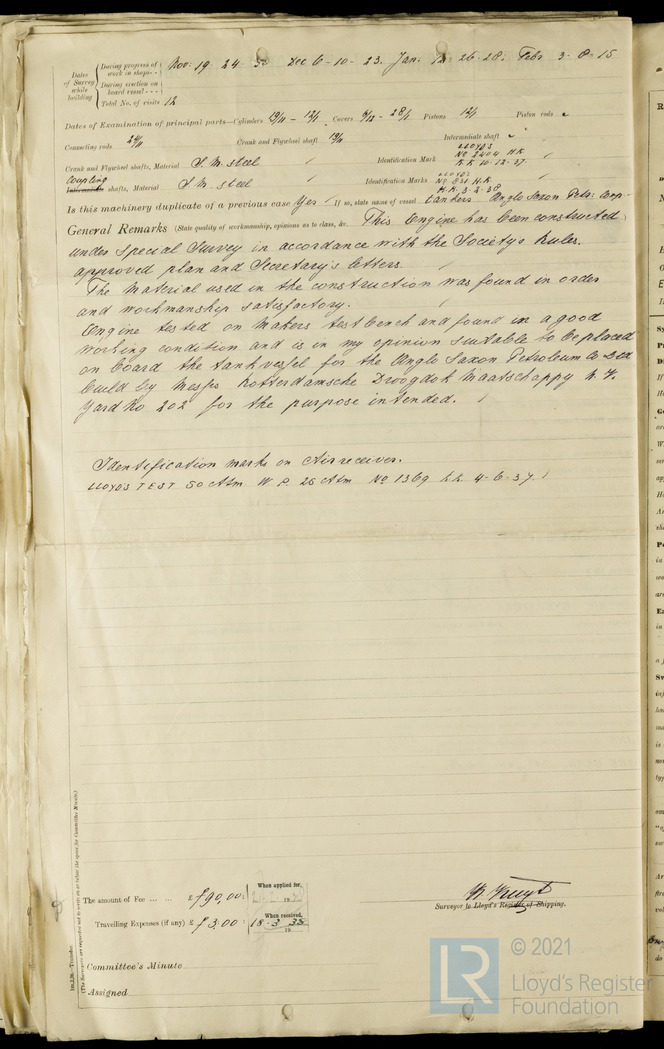 Dates of Survey while building
During progress of work in shops - - Nov: 19 24 30 Dec 6 - 10 - 23. Jan: 12 26 28. Feb: 3 - 8 - 15
During erection on board vessel - - -
Total No. of visits 12
Dates of Examination of principal parts—Cylinders Covers Pistons 12/1 Piston rods
Connecting rods 24/11 Crank and Flywheel shaft 19/11 Intermediate shaft
Crank and Flywheel shafts, Material S. M. steel Identification Mark LLOYDS No 2404 H.K. K.K 10-12-37.
Coupling Intermediate shafts, Material S. M. steel Identification Marks LLOYDS No 831 H.K. H.K. 3-2-38
Is this machinery duplicate of a previous case Yes If so, state name of vessel tankers Anglo Saxon Petr: Comp.
General Remarks (State quality of workmanship, opinions as to class, &c. This Engine has been constructed
under Special Survey in accordance with the Society's Rules.
approved plan and Secretary's letters.
The material used in the construction was found in order
and workmanship satisfactory.
Engine tested on Makers testbench and found in a good
working condition and is in my opinion suitable to be placed
on board the tankvessel for the Anglo Saxon Petroleum Co Ltd
build by Messrs Rotterdamsche Droogdok Maatschappy N. V.
Yard No 202 for the purpose intended.
Identification marks on Airreceiver.
LLOYDS TEST 50 Atm W. P. 25 Atm No 1369 K.K. 4-6-37
1m.1,36.—Transfer.
(The Surveyors are requested not to write on or below the space for Committee's Minute.)
The amount of Fee ... ... £ f 90.00 :
When applied for,
Travelling Expenses (if any) £ f 3.00 :
When received,
18-3 1938
Surveyor to Lloyd's Register of Shipping.
Committee's Minute
Assigned
LR
© 2021
Lloyd's Register
Foundation